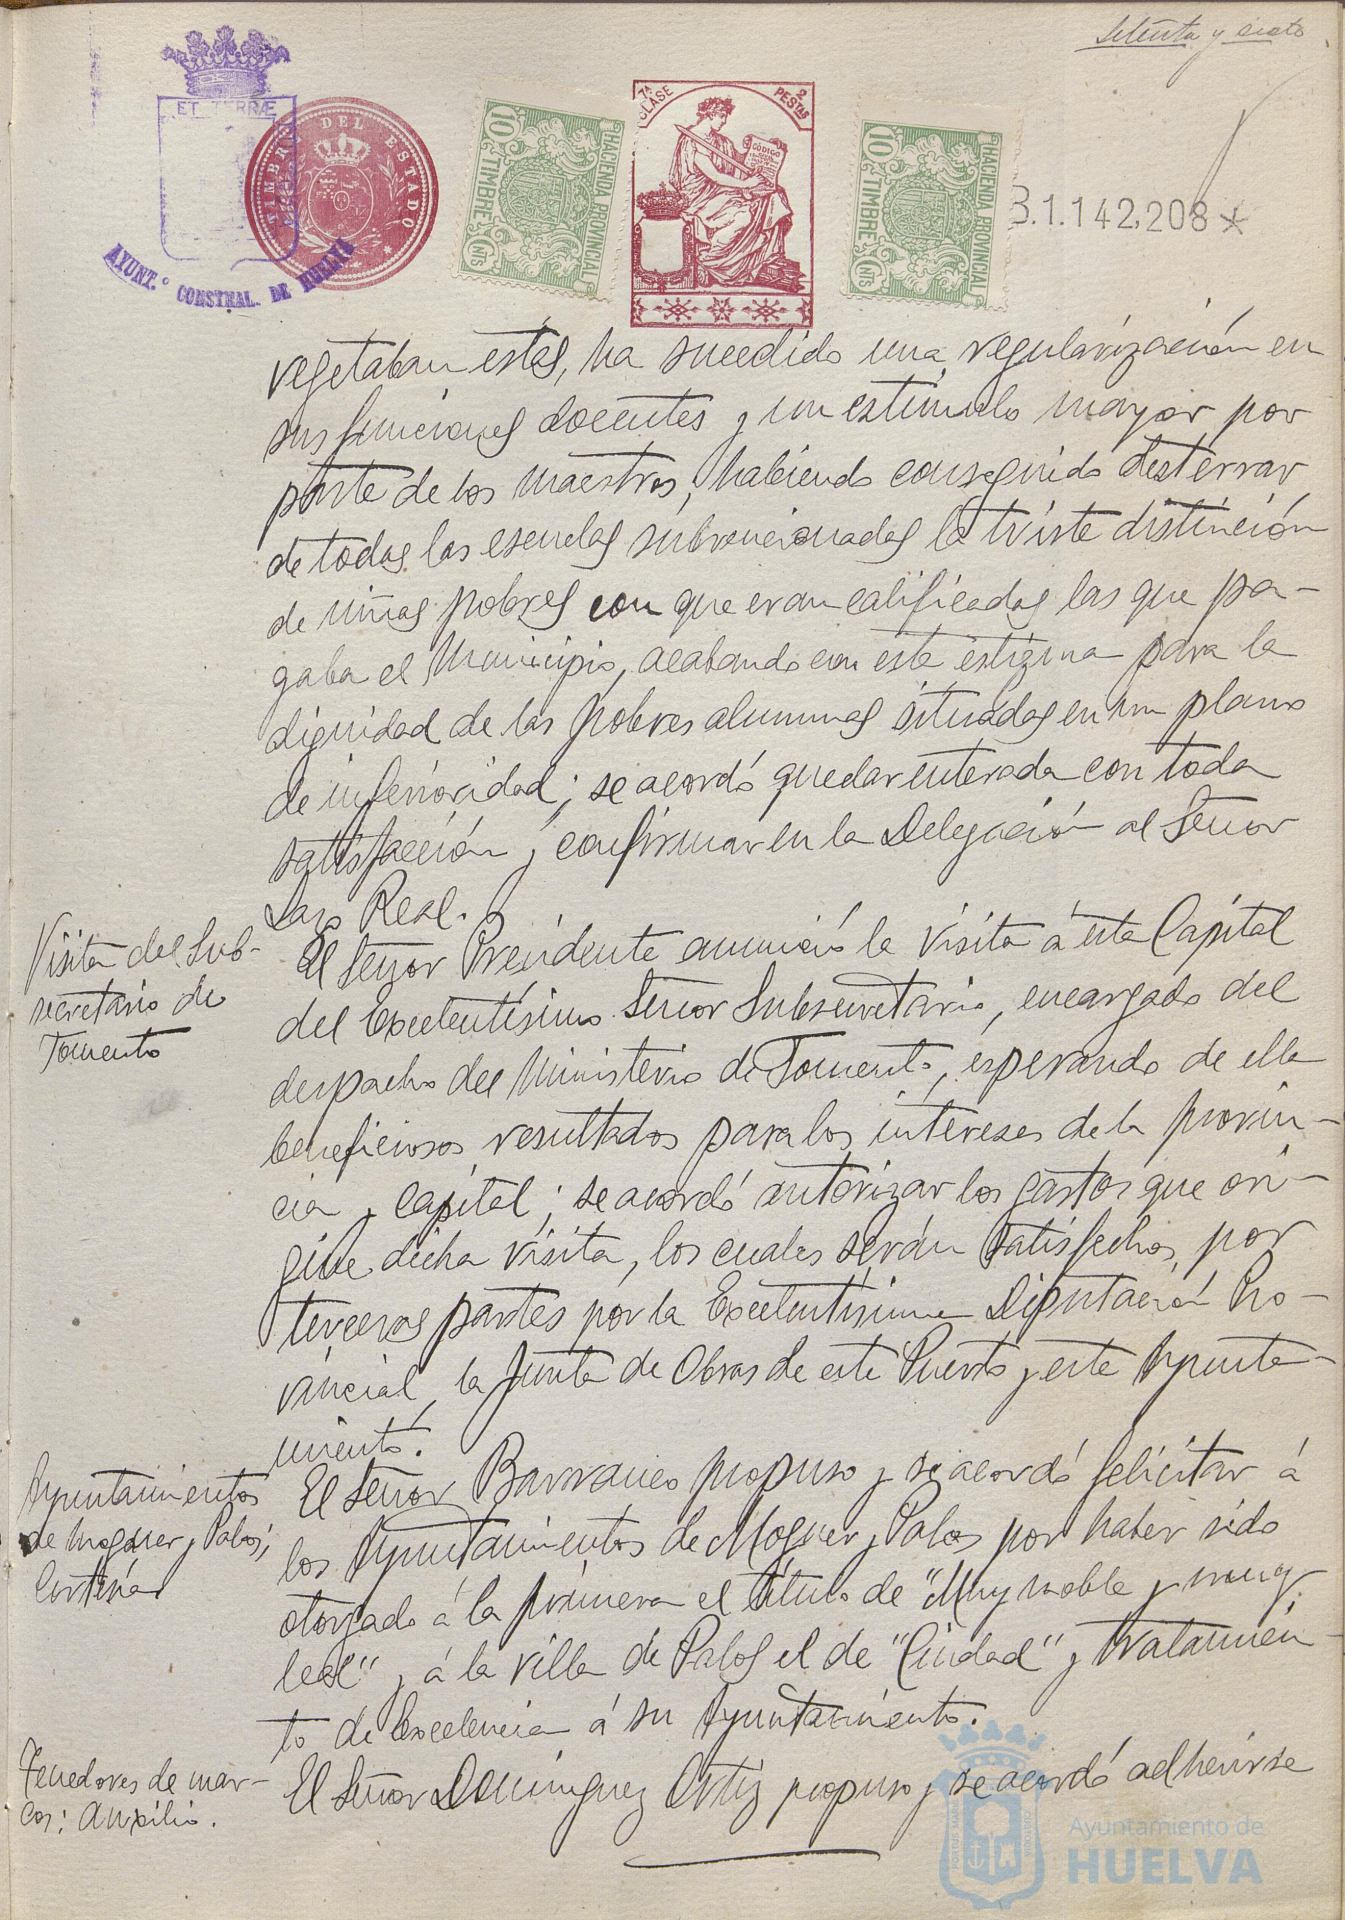 Setenta y siete
ET TERRÆ
TIMBRE DEL ESTADO
AYUNT.º CONSTNAL. DE HUELVA
HACIENDA PROVINCIAL
10 TIMBRE Cnts
7ª CLASE
2 PESTAS
CÓDIGO
HACIENDA PROVINCIAL
10 TIMBRE Cnts
B.1.142,208*
vegetaban estas, ha sucedido una regularización en
sus funciones docentes y un estímulo mayor por
parte de los maestros, habiendo conseguido desterrar
de todas las escuelas subvencionadas la triste distinción
de niñas pobres con que eran calificadas las que pa-
gaba el Municipio, acabando con este estigma para la
dignidad de las pobres alumnas situadas en un plano
de inferioridad; se acordó quedar enterada con toda
satisfacción y confirmar en la Delegación al Señor
Lazo Real.
Visita del Sub-
secretario de
Fomento
El Señor Presidente anunció la visita á esta Capital
del Excelentísimo Señor Subsecretario, encargado del
despacho del Ministerio de Fomento, esperando de ella
beneficiosos resultados para los intereses de la provin-
cia y capital; se acordó autorizar los gastos que ori-
gine dicha visita, los cuales serán satisfechos, por
terceras partes por la Excelentísima Diputación Pro-
vincial, la Junta de Obras de este Puerto y este Ayunta-
miento.
Ayuntamientos
de Moguer y Palos;
Cortesía
El Señor Barranco propuso y se acordó felicitar á
los Ayuntamientos de Moguer y Palos por haber sido
otorgado á la primera el título de "Muy noble y muy
leal" y á la villa de Palos el de "Ciudad" y tratamien-
to de Excelencia á su Ayuntamiento.
Tenedores de mar-
cos: Auxilio.
El Señor Domínguez Ortiz propuso y se acordó adherirse
Ayuntamiento de
HUELVA